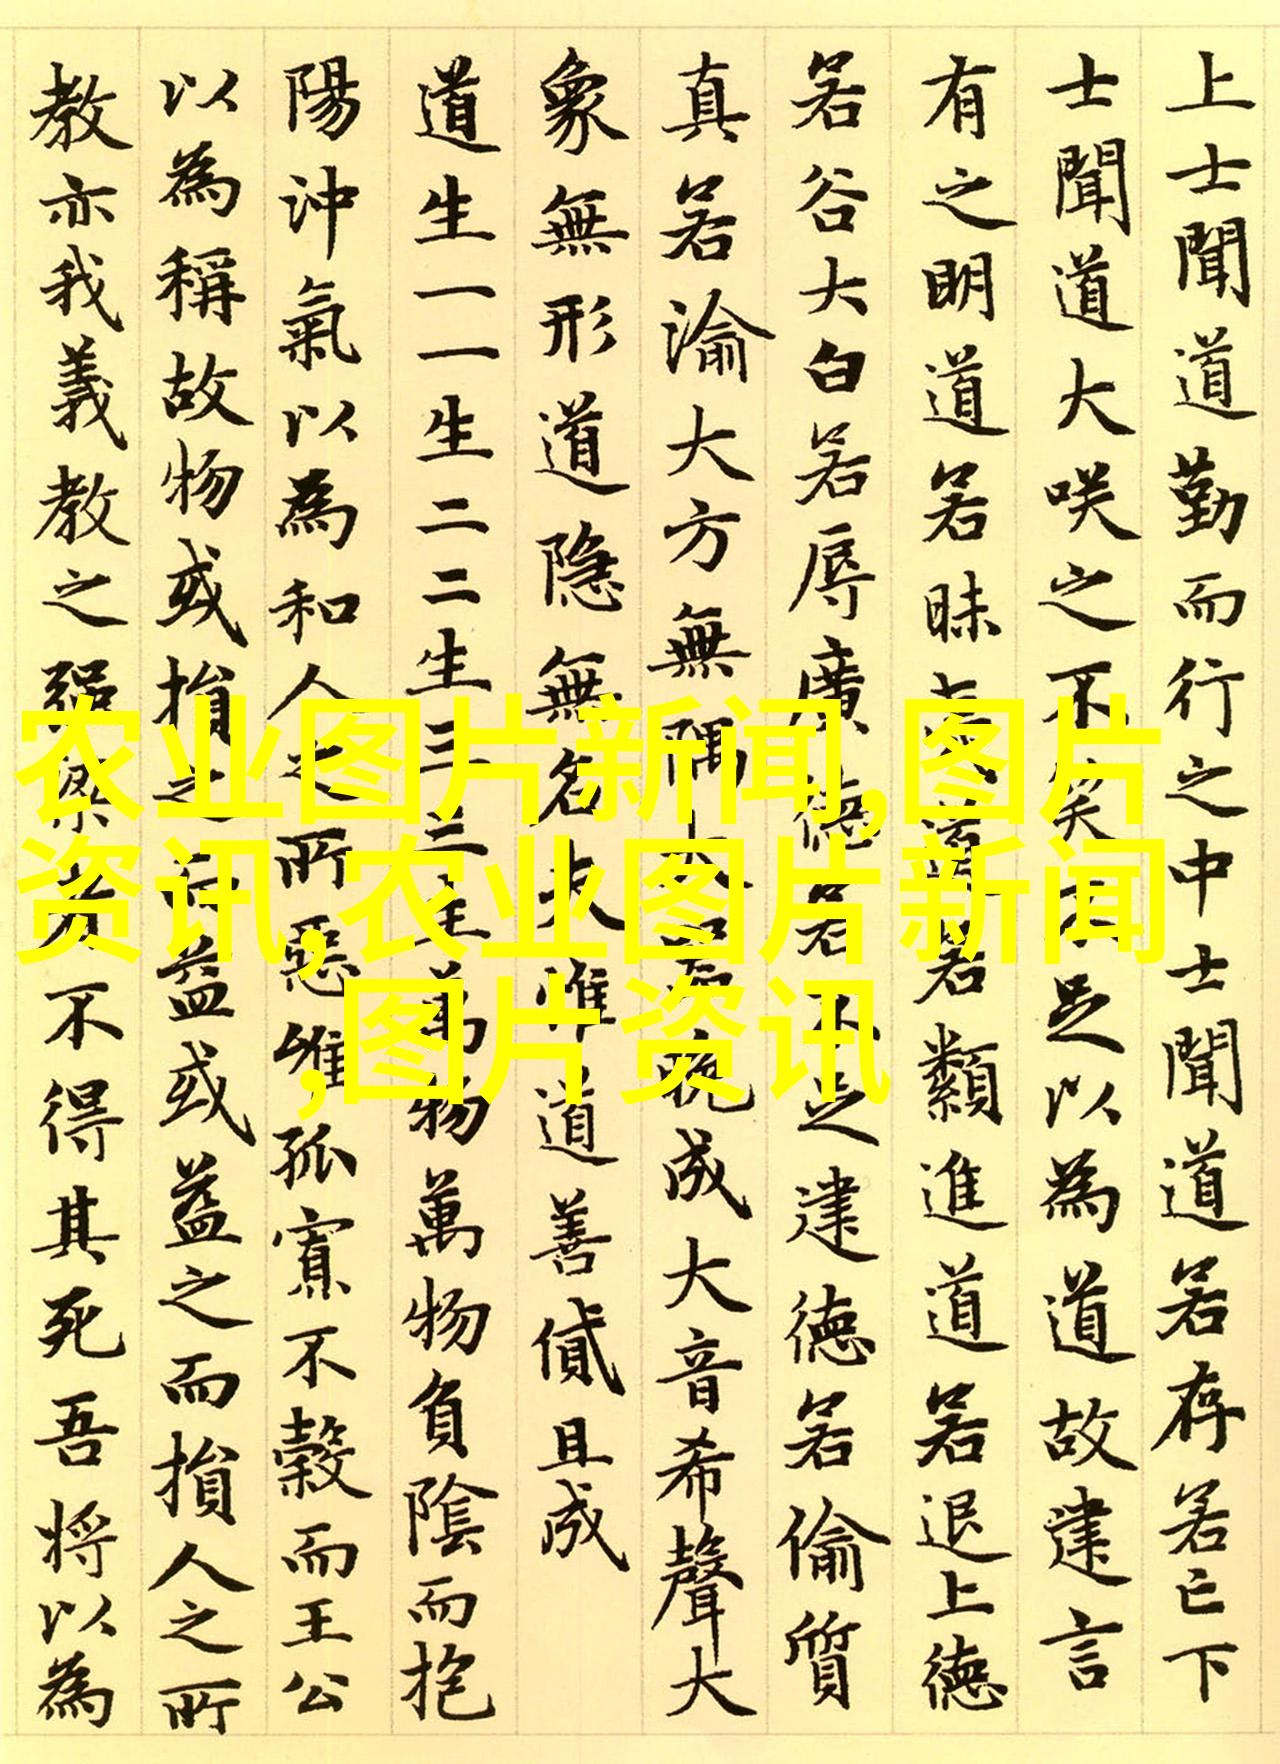 上士聞道勤而行之中士聞道若存若亡下
士聞道大咲之不笑不足以為道故建言
有之明道若昧夷道若類進道若退上德
若谷大白若辱廣德若不足建德若偷質
真若渝大方無隅大器晚成大音希聲大
象無形道隱無名夫惟道善貸且成
道生一一生二二生三三生萬物萬物負陰而抱
陽沖氣以為和人之所惡惟孤寡不穀而王公
以為稱故物或損之而益或益之而損人之所
教亦我義教之強梁者不得其死吾將以為
农业图片新闻,图片
资讯,农业图片新闻
,图片资讯